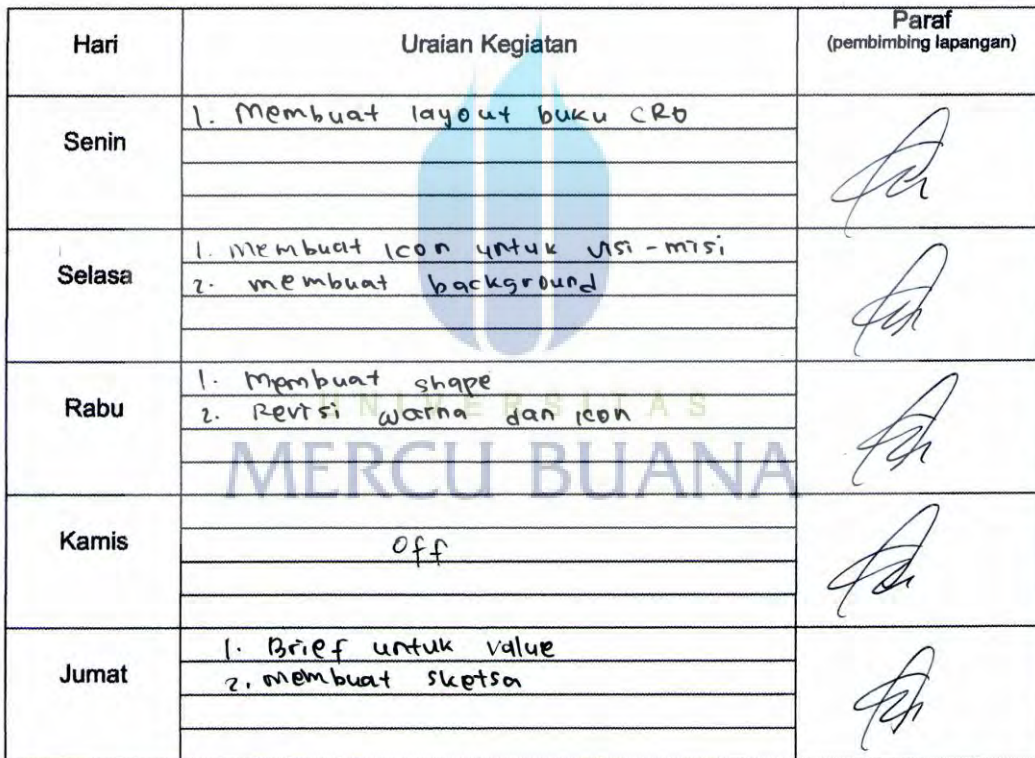 Hari Uraian Kegiatan Paraf
(pembimbing lapangan)
Senin
1. Membuat layout buku CRO
Selasa
1. Membuat icon untuk visi-misi
2. membuat background
Rabu
1. Membuat shape
2. Revisi warna dan icon
UNIVERSITAS
MERCU BUANA
Kamis
Off
Jumat
1. Brief untuk value
2. membuat sketsa